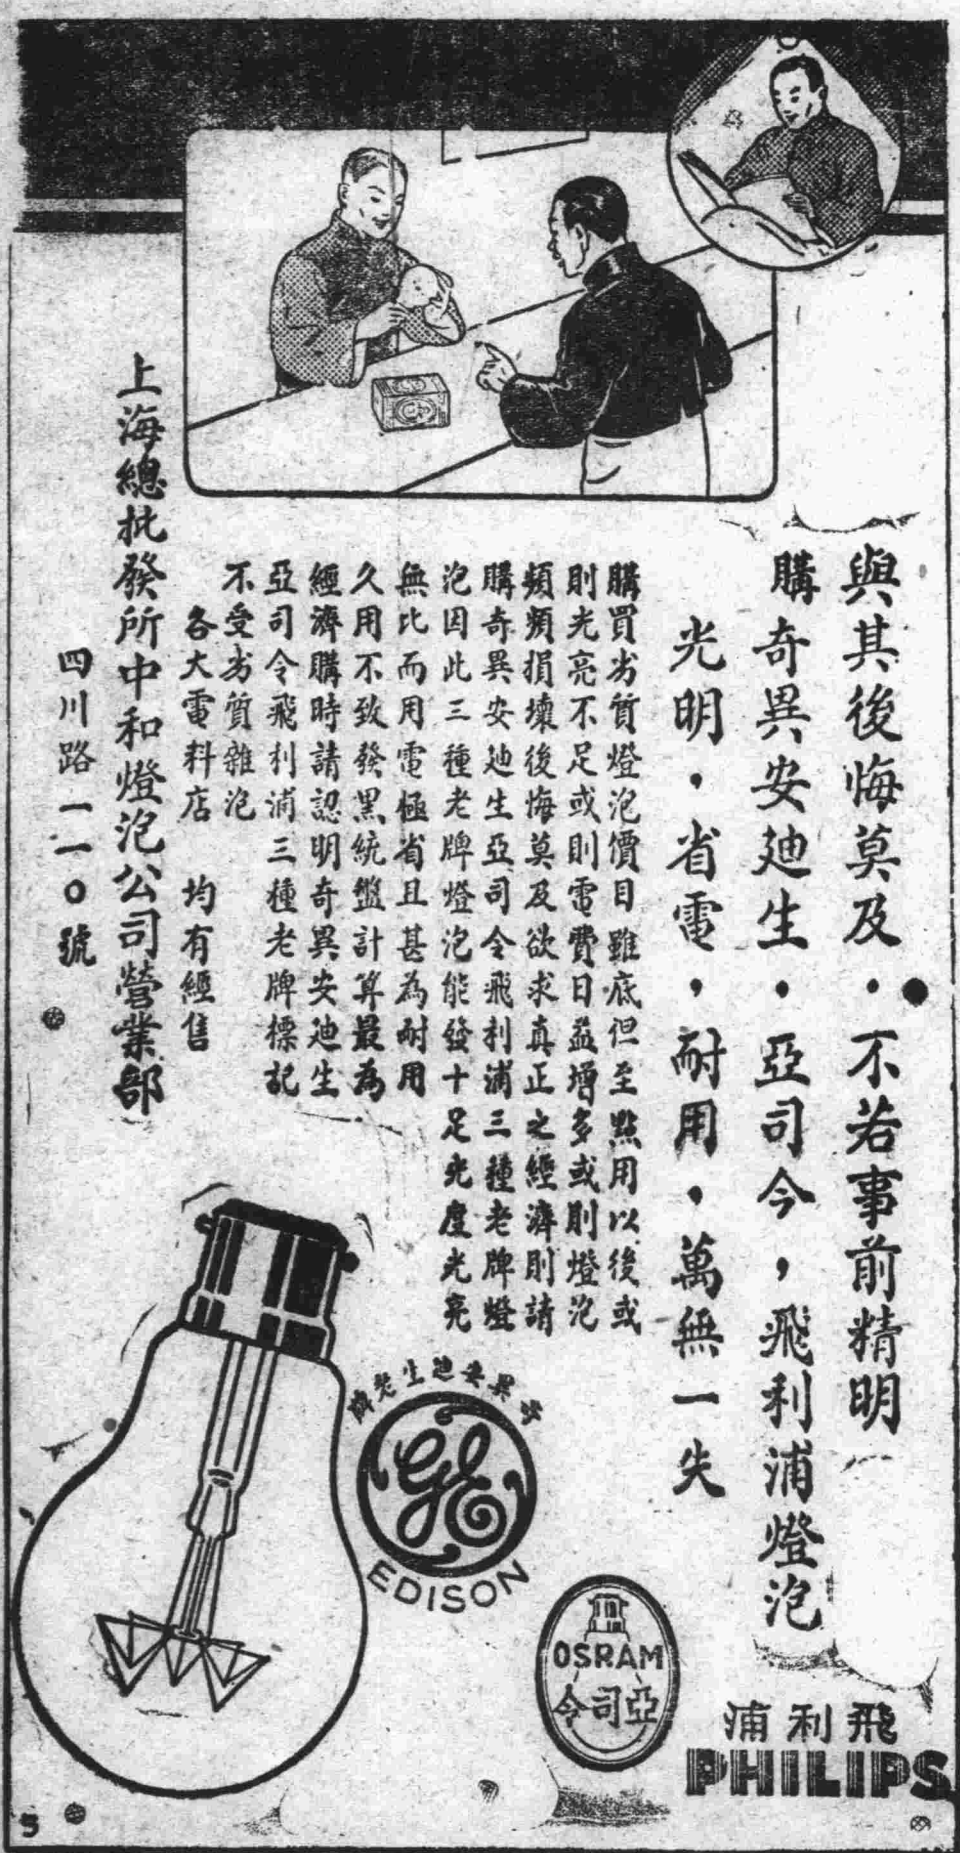 與其後悔莫及・不若事前精明
購奇異安廸生・亞司令，飛利浦燈泡
光明，省電，耐用，萬無一失
購買劣質燈泡價目雖底但至點用以後或
則光亮不足或則電費日益增多或則燈泡
頻頻損壞後悔莫及欲求真正之經濟則請
購奇異安廸生亞司令飛利浦三種老牌燈
泡因此三種老牌燈泡能發十足光度光亮
無比而用電極省且甚為耐用
久用不致發黑統盤計算最為
經濟購時請認明奇異安廸生
亞司令飛利浦三種老牌標記
不受劣質雜泡
各大電料店　均有經售
上海總批發所中和燈泡公司營業部
四川路一一〇號
奇異安廸生老牌
GE
EDISON
OSRAM
亞司令
飛利浦
PHILIPS
5